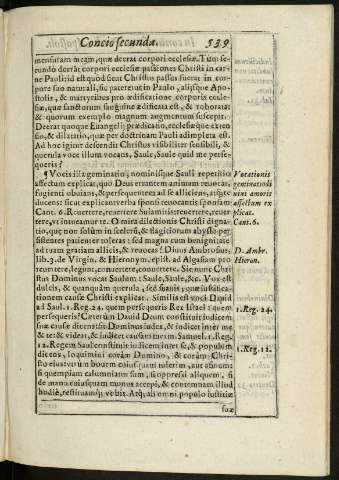 Concio secunda. 539
mensuram meam, quæ deerat corpori ecclesiæ. Tum secundo
deerãt corpori ecclesiæ passiones Christi in carne
Pauli: id est quod sicut Christus passus fuerat in corpore
suo naturali, sic pateretur in Paulo, alijsque Apostolis,
& martyribus pro ædificatione corporis ecclesiæ,
quæ sanctorum sanguine ædificata est, & roborata:
& quorum exemplo magnum augmentum suscepit.
Deerat quoque Euangelij prædicatio, ecclesiæque extensio,
& dilatatio, quæ per doctrinam Pauli adimpleta est.
Ad hoc igitur descendit Christus visibiliter sensibili, &
querula voce illum vocans, Saule, Saule quid me persequeris?
¶ Vocis illa geminatio, nominisque Sauli repetitio
affectum explicat, quo Deus errantem animam reuocat,
fugienti obuians, & persequentem ad se alliciens, atque
ducens: sicut explicant verba sponsi reuocantis sponsam
Cant. 6. Reuertere, reuertere Sulamitis: reuertere, reuertere,
vt intueamur te. O mira dilectionis Christi dignatio,
qui non solùm in scelerũ, & flagitiorum abysto persistentes
patienter tolerat: sed magna cum benignitate
ad tuam gratiam allicis, & reuocas! Diuus Ambrosius
lib. 3. de Virgin. & Hieronym. epist. ad Algasiam pro
reuertere, legunt, conuertere, conuertere. Sic nunc Christus
Dominus vocat Saulum: Saule, Saule, &c. Vox est
dulcis, & quanquãm querula, sed suauis; quæ iustificationem
causæ Christi explicat. Similis est voci Dauid
ad Saul. 1. Reg. 24. quem persequeris Rex Israel? quem
persequeris? Cæterum Dauid Deum constituit iudicem
suæ causæ dicens: Sit Dominus iudex, & iudicet inter me
& te: & videat, & iudicet causam meam. Samuel. 1. Reg.
12. Regem Saul constituit iudicem inter se, & populum
dicens, loquimini coràm Domino, & coràm Christo
eius: vtrum bouem cuiusquam tulerim, aut asinum:
si quempiam calumniatus sum, si oppressi aliquem, si
de manu cuiusquam munus accepi, & contemnam illud
hodiè, restituamq; vobis. Atq; ali omni populo iustitiæ
suæ
Vocationis
geminationem
vini amoris
affectum explicat.
Cant. 6.
D. Ambr.
Hieron.
1. Reg. 24.
1. Reg. 12.